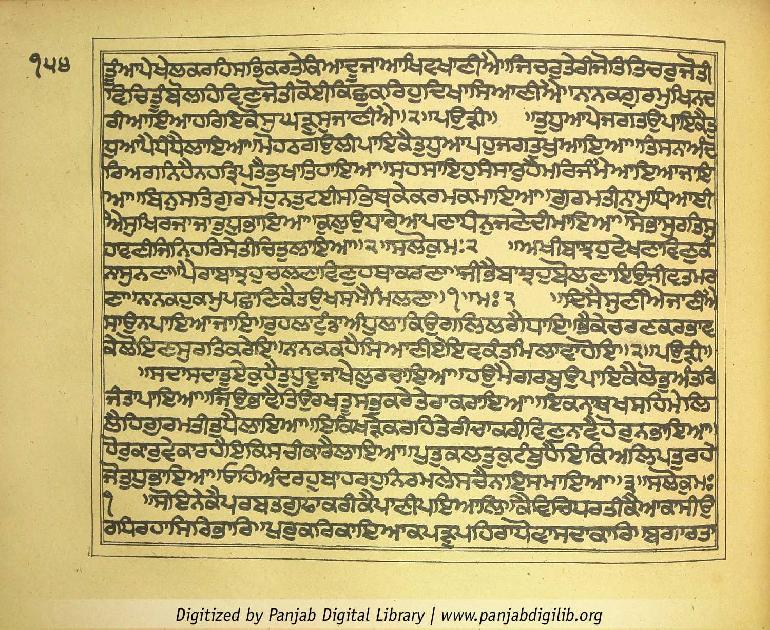 ੧੫੪
ਤੂੰਆਪੇਖੇਲਕਰਹਿਸਭਿਕਰਤੇਕਿਆਦੂਜਾਆਖਿਵਖਾਣੀਐ॥ਜਿਚਰੁਤੇਰੀਜੋਤਿਤਿਚਰੁਜੋਤੀ
ਵਿਚਿਤੂੰਬੋਲਹਿਵਿਣੁਜੋਤੀਕੋਈਕਿਛੁਕਰਿਹੁਦਿਖਾਸਿਆਣੀਐ॥ਨਾਨਕਗੁਰਮੁਖਿਨਦ
ਰੀਆਇਆਹਰਿਇਕੋਸੁਘੜੁਸੁਜਾਣੀਐ॥੨॥ਪਉੜੀ॥ ਤੁਧੁਆਪੇਜਗਤੁਉਪਾਇਕੈਤੁ
ਧੁਆਪੇਧੰਧੈਲਾਇਆ॥ਮੋਹਠਗਉਲੀਪਾਇਕੈਤੁਧੁਆਪਹੁਜਗਤੁਖੁਆਇਆ॥ਤਿਸਨਾਅੰਦ
ਰਿਅਗਨਿਹੈਨਹਤਿਪਤੈਭੁਖਾਤਿਹਾਇਆ॥ਸਹਸਾਇਹੁਸੰਸਾਰੁਹੈਮਰਿਜੰਮੈਆਇਆਜਾਇ
ਆ॥ਬਿਨੁਸਤਿਗੁਰਮੋਹੁਨਤੁਟਈਸਭਿਥਕੇਕਰਮਕਮਾਇਆ॥ਗੁਰਮਤੀਨਾਮੁਧਿਆਈ
ਐਸੁਖਿਰਜਾਜਾਤੁਧੁਭਾਇਆ॥ਕੁਲੁਉਧਾਰੇਆਪਣਾਧੰਨੁਜਣੇਦੀਮਾਇਆ॥ਸੋਭਾਸੁਰਤਿਸੁ
ਹਾਵਣੀਜਿਨਿਹਰਿਸੇਤੀਚਿਤੁਲਾਇਆ॥੨॥ਸਲੋਕੁਮਃ੨ ॥ਅਖੀਬਾਝਹੁਵੇਖਣਾਵਿਣੁਕੰ
ਨਾਸੁਨਣਾ॥ਪੈਰਾਬਾਝਹੁਚਲਣਾਵਿਣੁਹਥਾਕਰਣਾ॥ਜੀਭੈਬਾਝਹੁਬੋਲਣਾਇਉਜੀਵਤਮਰ
ਣਾ॥ਨਾਨਕਹੁਕਮੁਪਛਾਣਿਕੈਤਉਖਸਮੈਮਿਲਣਾ॥੧॥ਮਃ੨ ॥ਦਿਸੈਸੁਣੀਐਜਾਣੀਐ
ਸਾਉਨਪਾਇਆਜਾਇ॥ਰੁਹਲਾਟੁੰਡਾਅੰਧੁਲਾਕਿਉਗਲਿਲਗੈਧਾਇ॥ਭੈਕੇਚਰਣਕਰਭਾਵ
ਕੇਲੋਇਣਸੁਰਤਿਕਰੇਇ॥ਨਾਨਕਕਹੈਸਿਆਣੀਏਇਵਕੰਤਮਿਲਾਵਾਹੋਇ॥੨॥ਪਉੜੀ॥
॥ਸਦਾਸਦਾਤੂਏਕੁਹੈਤੁਧੁਦੂਜਾਖੇਲੁਰਚਾਇਆ॥ਹਉਮੈਗਰਬੁਉਪਾਇਕੈਲੋਭੁਅੰਤਰਿ
ਜੰਤਾਪਾਇਆ॥ਜਿਉਭਾਵੈਤਿਉਰਖੁਤੂਸਭਕਰੇਤੇਰਾਕਰਾਇਆ॥ਇਕਨਾਬਖਸਹਿਮੇਲਿ
ਲੈਹਿਗੁਰਮਤੀਤੁਧੈਲਾਇਆ॥ਇਕਿਖੜੇਕਰਹਿਤੇਰੀਚਾਕਰੀਵਿਣੁਨਾਵੈਹੋਰੁਨਭਾਇਆ॥
ਹੋਰੁਕਾਰਵੇਕਾਰਹੈਇਕਿਸਚੀਕਾਰੈਲਾਇਆ॥ਪੁਤੁਕਲਤੁਕੁਟੰਬੁਹੈਇਕਿਅਲਿਪਤੁਰਹੇ
ਜੋਤੁਧੁਭਾਇਆ॥ਓਹਿਅੰਦਰਹੁਬਾਹਰਹੁਨਿਰਮਲੇਸਚੈਨਾਇਸਮਾਇਆ॥੩॥ਸਲੋਕੁਮਃ
੧ ॥ਸੁਇਨੇਕੈਪਰਬਤਿਗੁਫਾਕਰੀਕੈਪਾਣੀਪਇਆਲਿ॥ਕੈਵਿਚਿਧਰਤੀਕੈਆਕਾਸੀਉ
ਰਧਿਰਹਾਸਿਰਿਭਾਰਿ॥ਪੁਰੁਕਰਿਕਾਇਆਕਪੜੁਪਹਿਰਾਧੋਵਾਸਦਾਕਾਰਿ॥ਬਗਾਰਤਾ
Digitized by Panjab Digital Library | www.panjabdigilib.org